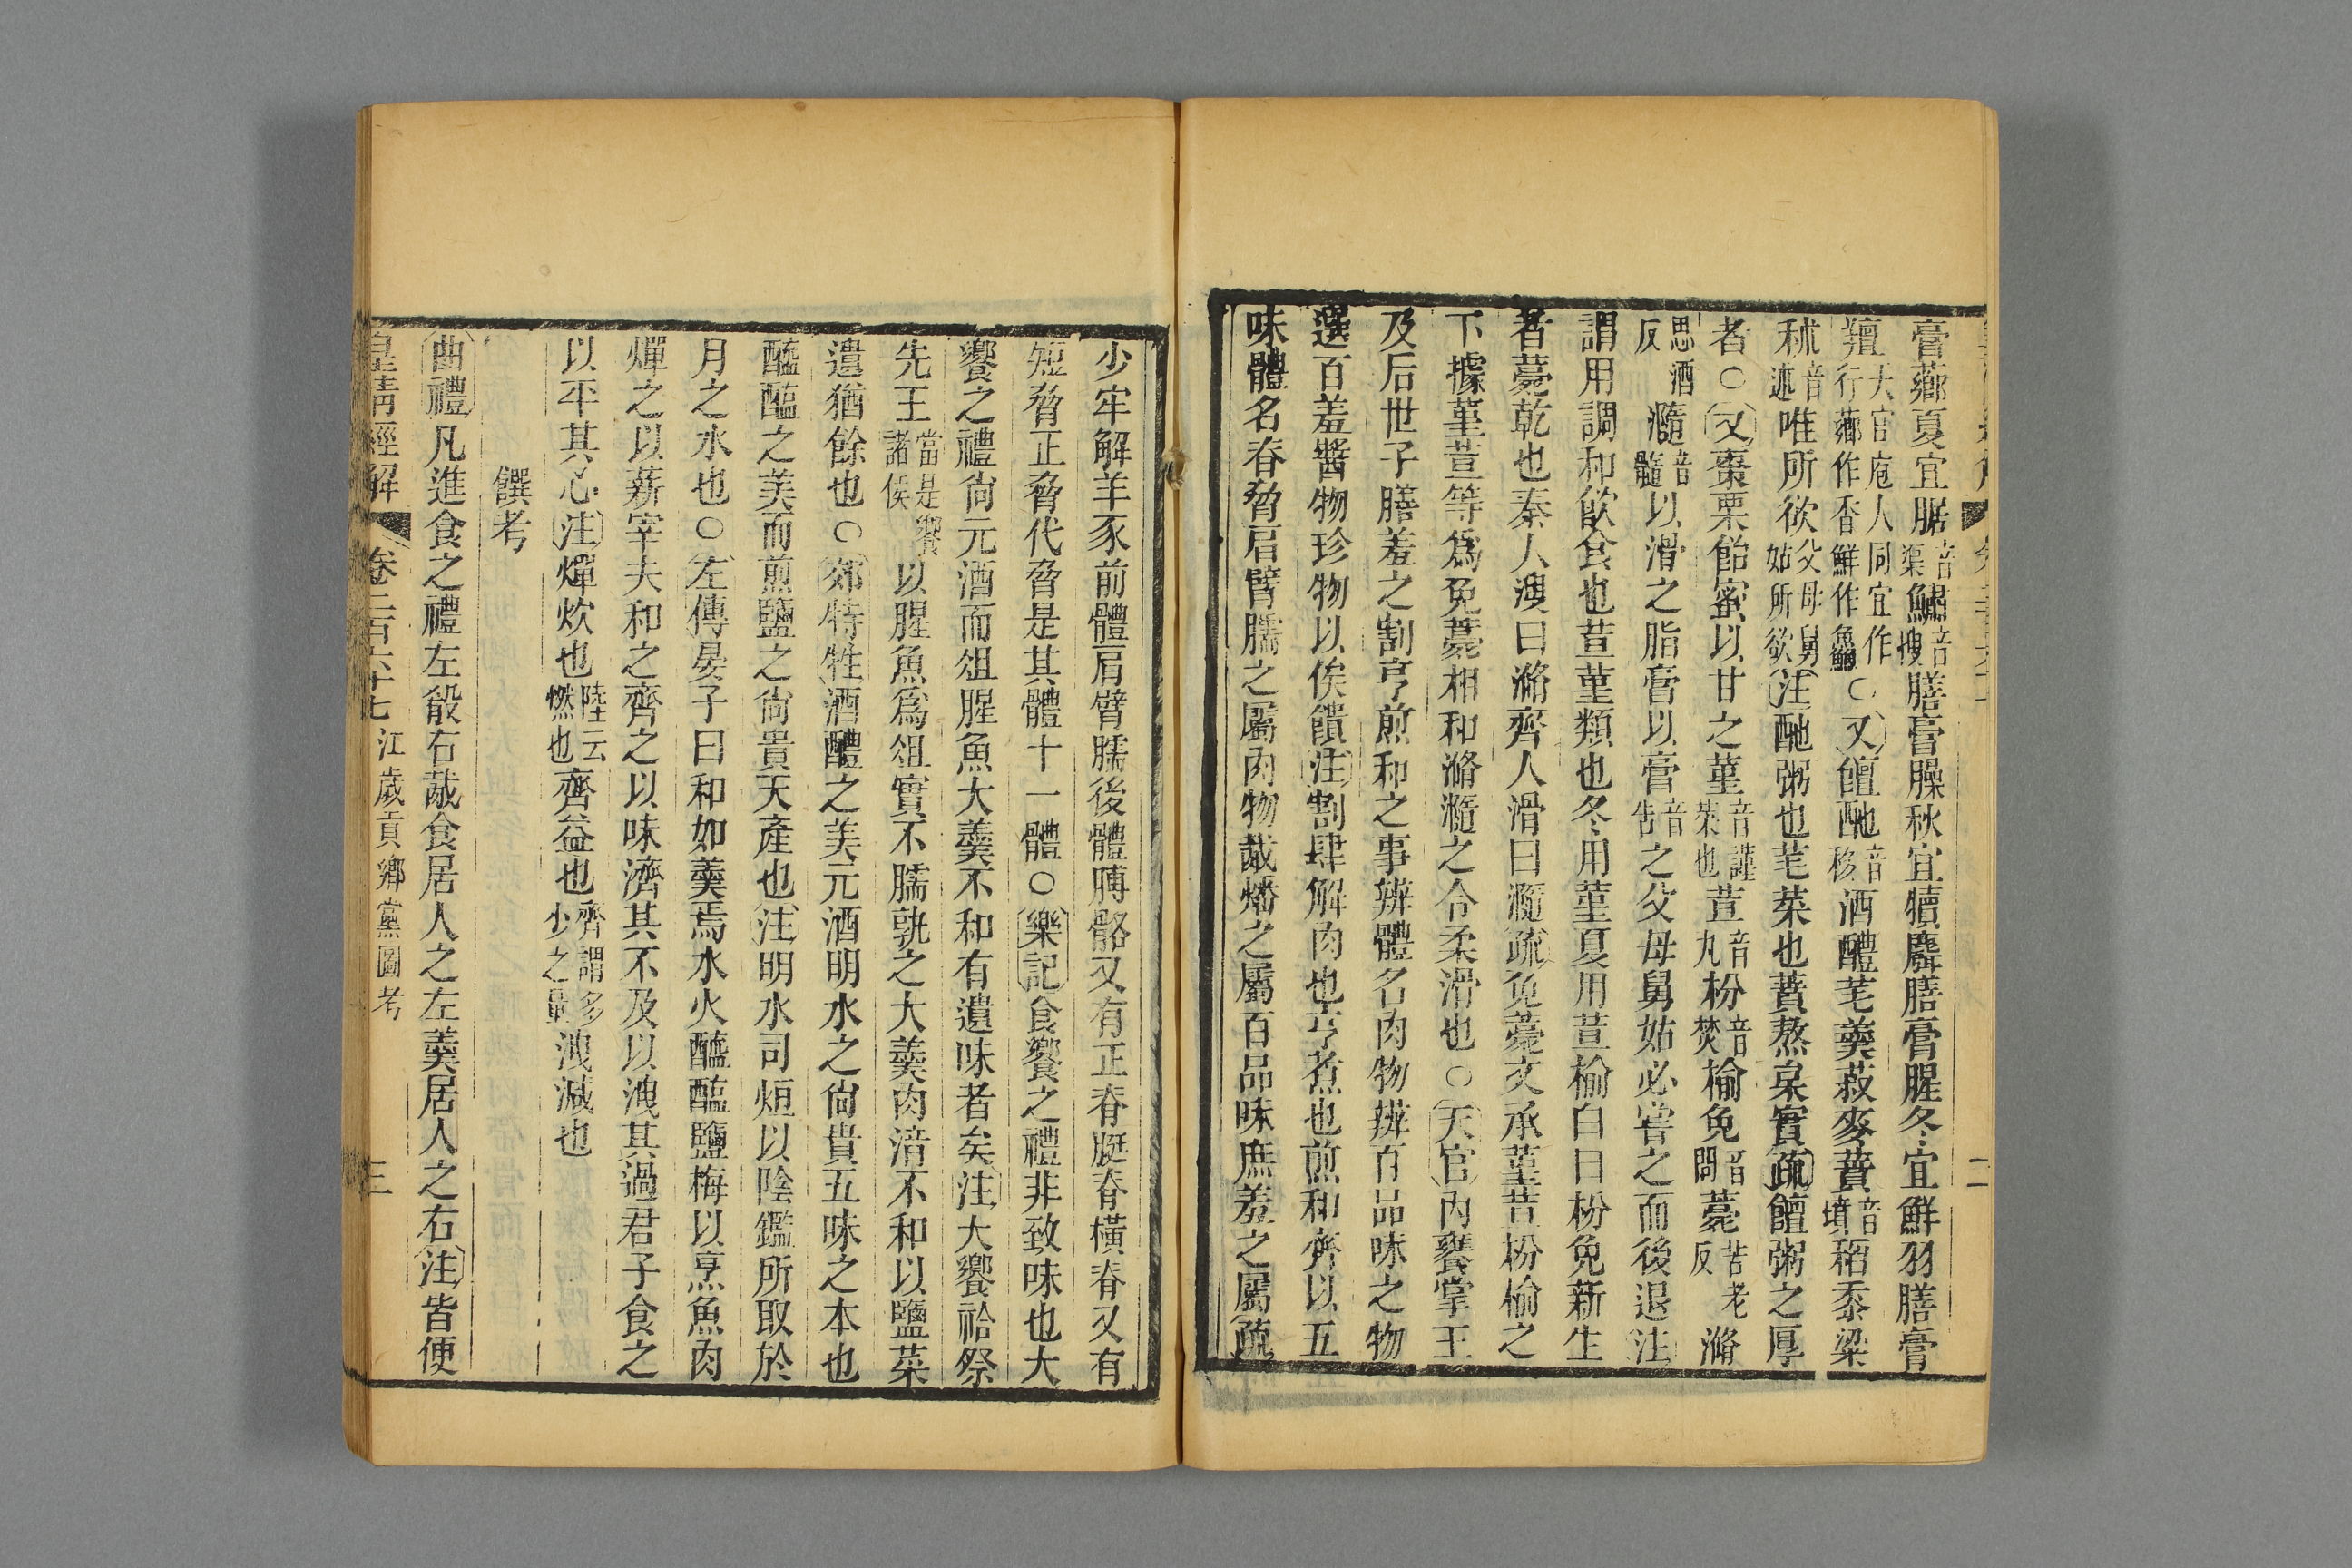 膏薌夏宜腒音渠鱐音搜膳膏臊秋宜犢麛膳膏腥冬宜鮮羽膳膏
羶天官庖人同宜作行薌作香鮮作鱻○又饘酏音移酒醴芼羹菽麥蕡音墳稻黍粱
秫音述唯所欲父母舅姑所欲注酏粥也芼菜也蕡熬枲實疏饘粥之厚
者○又棗栗飴蜜以甘之堇音謹菜也荁音丸枌音焚榆免音問薧苦老反滫
思酒反瀡音髓以滑之脂膏以膏音告之父母舅姑必嘗之而後退注
謂用調和飲食也荁堇類也冬用堇夏用荁榆白曰枌免新生
者薧乾也秦人溲曰滫齊人滑曰瀡疏免薧文承堇荁枌榆之
下據堇荁等爲免薧相和滫瀡之令柔滑也○天官內饔掌王
及后世子膳羞之割亨煎和之事辨體名肉物辨百品味之物
選百羞醬物珍物以俟饋注割肆解肉也亨煮也煎和齊以五
味體名脊脅肩臂臑之屬肉物胾燔之屬百品味庶羞之屬疏
少牢解羊豕前體肩臂臑後體膊骼又有正脊脡脊橫脊又有
短脅正脅代脅是其體十一體○樂記食饗之禮非致味也大
饗之禮尙元酒而俎腥魚大羹不和有遺味者矣注大饗祫祭
先王當是饗諸侯以腥魚爲俎實不臑孰之大羹肉湆不和以鹽菜
遺猶餘也○郊特牲酒醴之美元酒明水之尙貴五味之本也
醯醢之美而煎鹽之尙貴天產也注明水司烜以陰鑑所取於
月之水也○左傳晏子曰和如羹焉水火醯醢鹽梅以烹魚肉
燀之以薪宰夫和之齊之以味濟其不及以洩其過君子食之
以平其心注燀炊也陸云燃也齊益也齊謂多少之量洩減也
饌考
曲禮凡進食之禮左殽右胾食居人之左羹居人之右注皆便
皇清經解 卷二百六十七 江歲貢鄉黨圖考 三